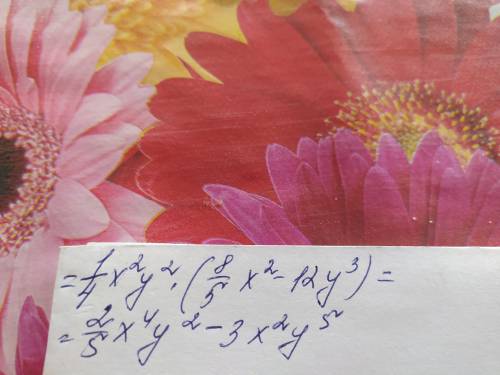 = 1/4 x²y² · (8/5 x² - 12y³) =
= 2/5 x⁴y² - 3x²y⁵